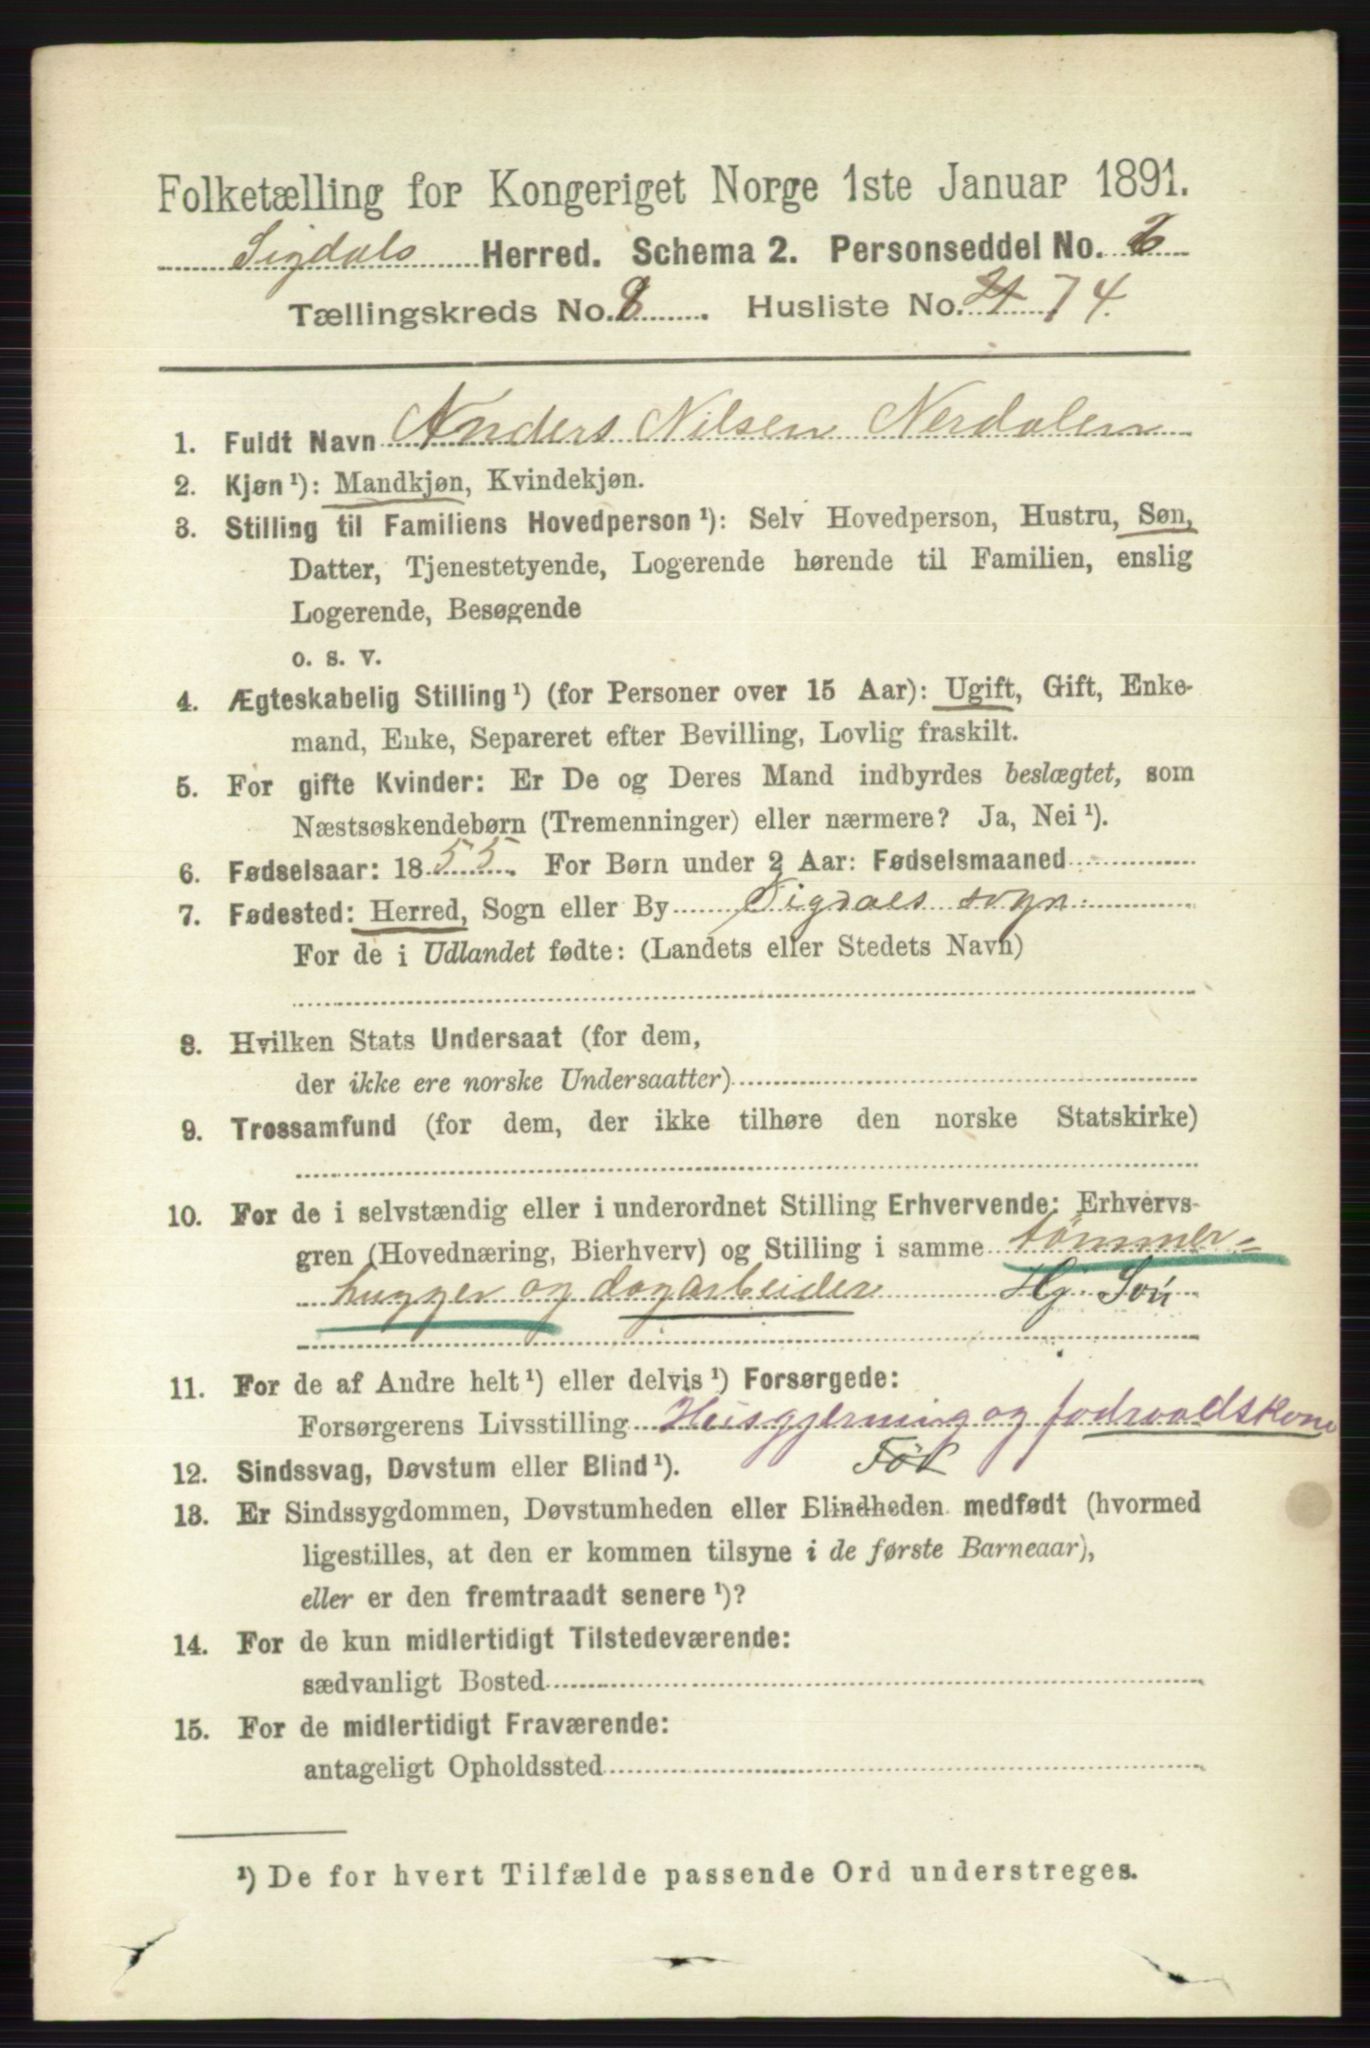 Folketælling for Kongeriget Norge 1ste Januar 1891.
Sigdals Herred. Schema 2. Personseddel No. 2
Tællingskreds No. 8. Husliste No. 74.
1. Fuldt Navn Anders Nilsen Nerdalen
2. Kjøn¹): Mandkjøn, Kvindekjøn.
3. Stilling til Familiens Hovedperson¹): Selv Hovedperson, Hustru, Søn,
Datter, Tjenestetyende, Logerende hørende til Familien, enslig
Logerende, Besøgende
o. s. v.
4. Ægteskabelig Stilling¹) (for Personer over 15 Aar): Ugift, Gift, Enke-
mand, Enke, Separeret efter Bevilling, Lovlig fraskilt.
5. For gifte Kvinder: Er De og Deres Mand indbyrdes beslægtet, som
Næstsøskendebørn (Tremenninger) eller nærmere? Ja, Nei¹).
6. Fødselsaar: 1855. For Børn under 2 Aar: Fødselsmaaned
7. Fødested: Herred, Sogn eller By Sigdals sogn.
For de i Udlandet fødte: (Landets eller Stedets Navn)
8. Hvilken Stats Undersaat (for dem,
der ikke ere norske Undersaatter)
9. Trossamfund (for dem, der ikke tilhøre den norske Statskirke)
10. For de i selvstændig eller i underordnet Stilling Erhvervende: Erhvervs-
gren (Hovednæring, Bierhverv) og Stilling i samme tømmer-
hugger og dagarbeider Hj. Søn
11. For de af Andre helt¹) eller delvis¹) Forsørgede:
Forsørgerens Livsstilling Husgjerning og fodraadskone
12. Sindssvag, Døvstum eller Blind¹).
13. Er Sindssygdommen, Døvstumheden eller Blindheden medfødt (hvormed
ligestilles, at den er kommen tilsyne i de første Barneaar),
eller er den fremtraadt senere¹)?
14. For de kun midlertidigt Tilstedeværende:
sædvanligt Bosted
15. For de midlertidigt Fraværende:
antageligt Opholdssted
¹) De for hvert Tilfælde passende Ord understreges.